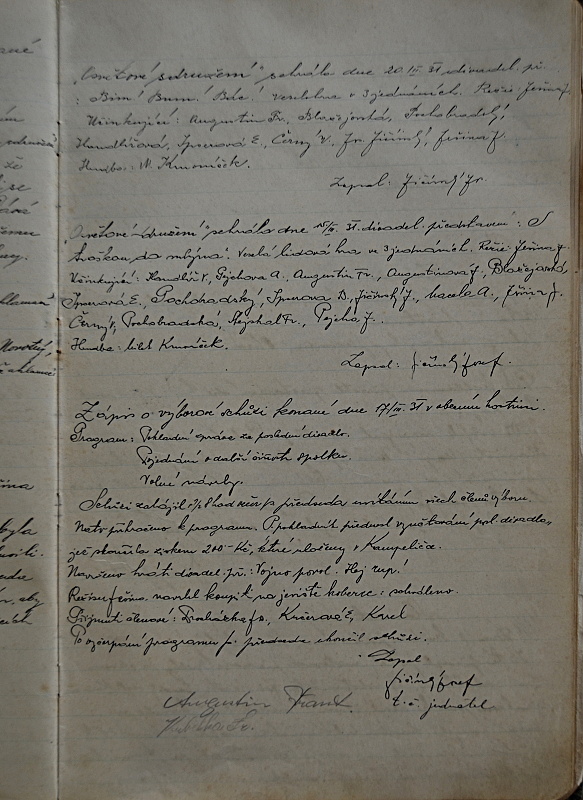 "Osvětové sdružení" sehrálo dne 20.III.31 divadel. př.
: Bim! Bum! Bác! veselohra v 3 jednáních. Režie Jiřina J.
Účinkující: Augustin Fr., Blažejovská, Pochobradský,
Handlířová, Sporerová E., Černý V., Jr. Jičínský, Jiřina J.
Hudba: V. Krnoušek.
Zapsal: Jičínský Jr.
"Osvětové sdružení" sehrálo dne 15/III. 31. divadel. představení: S
kaškou do mlýna". Veselá lidová hra ve 3 jednáních. Režie: Jiřina J.
Účinkující: Handlíř V., Pejchova A., Augustin Fr., Augustinova J., Blažejovská,
E., Pochobradský, D., Jičínský J., Macela A., Jiřina J.
Černý V., Pochobradská, Fr., Pejcha J.
Hudba:
Zapsal: Jičínský Josef.
Zápis o výborové schůzi konané dne 17/III. 31 v obecním hostinci.
Program: Pokladní zpráva za poslední divadlo.
Pojednání o další činnosti spolku.
Volné návrhy.
Schůzi zahájil 1/2 8 hod večer p. předseda uvítáním všech členů výboru.
Nato přikročeno k programu. P. pokladník přednesl vyúčtování posl. divadla,
jež skončilo ziskem 200 Kč, které uloženy v Kampeličce.
Navrženo hráti divadel. př.: Vojno povol! Hej rup!
Režisér Jiřina navrhl koupit na jeviště koberec: schváleno.
Přijmuti členové: Procházka Jo., Kučerová E., Karel
Po vyčerpání programu p. předseda skončil schůzi.
Zapsal
Jičínský Josef
t.č. jednatel
Augustin Frant.
Fr.